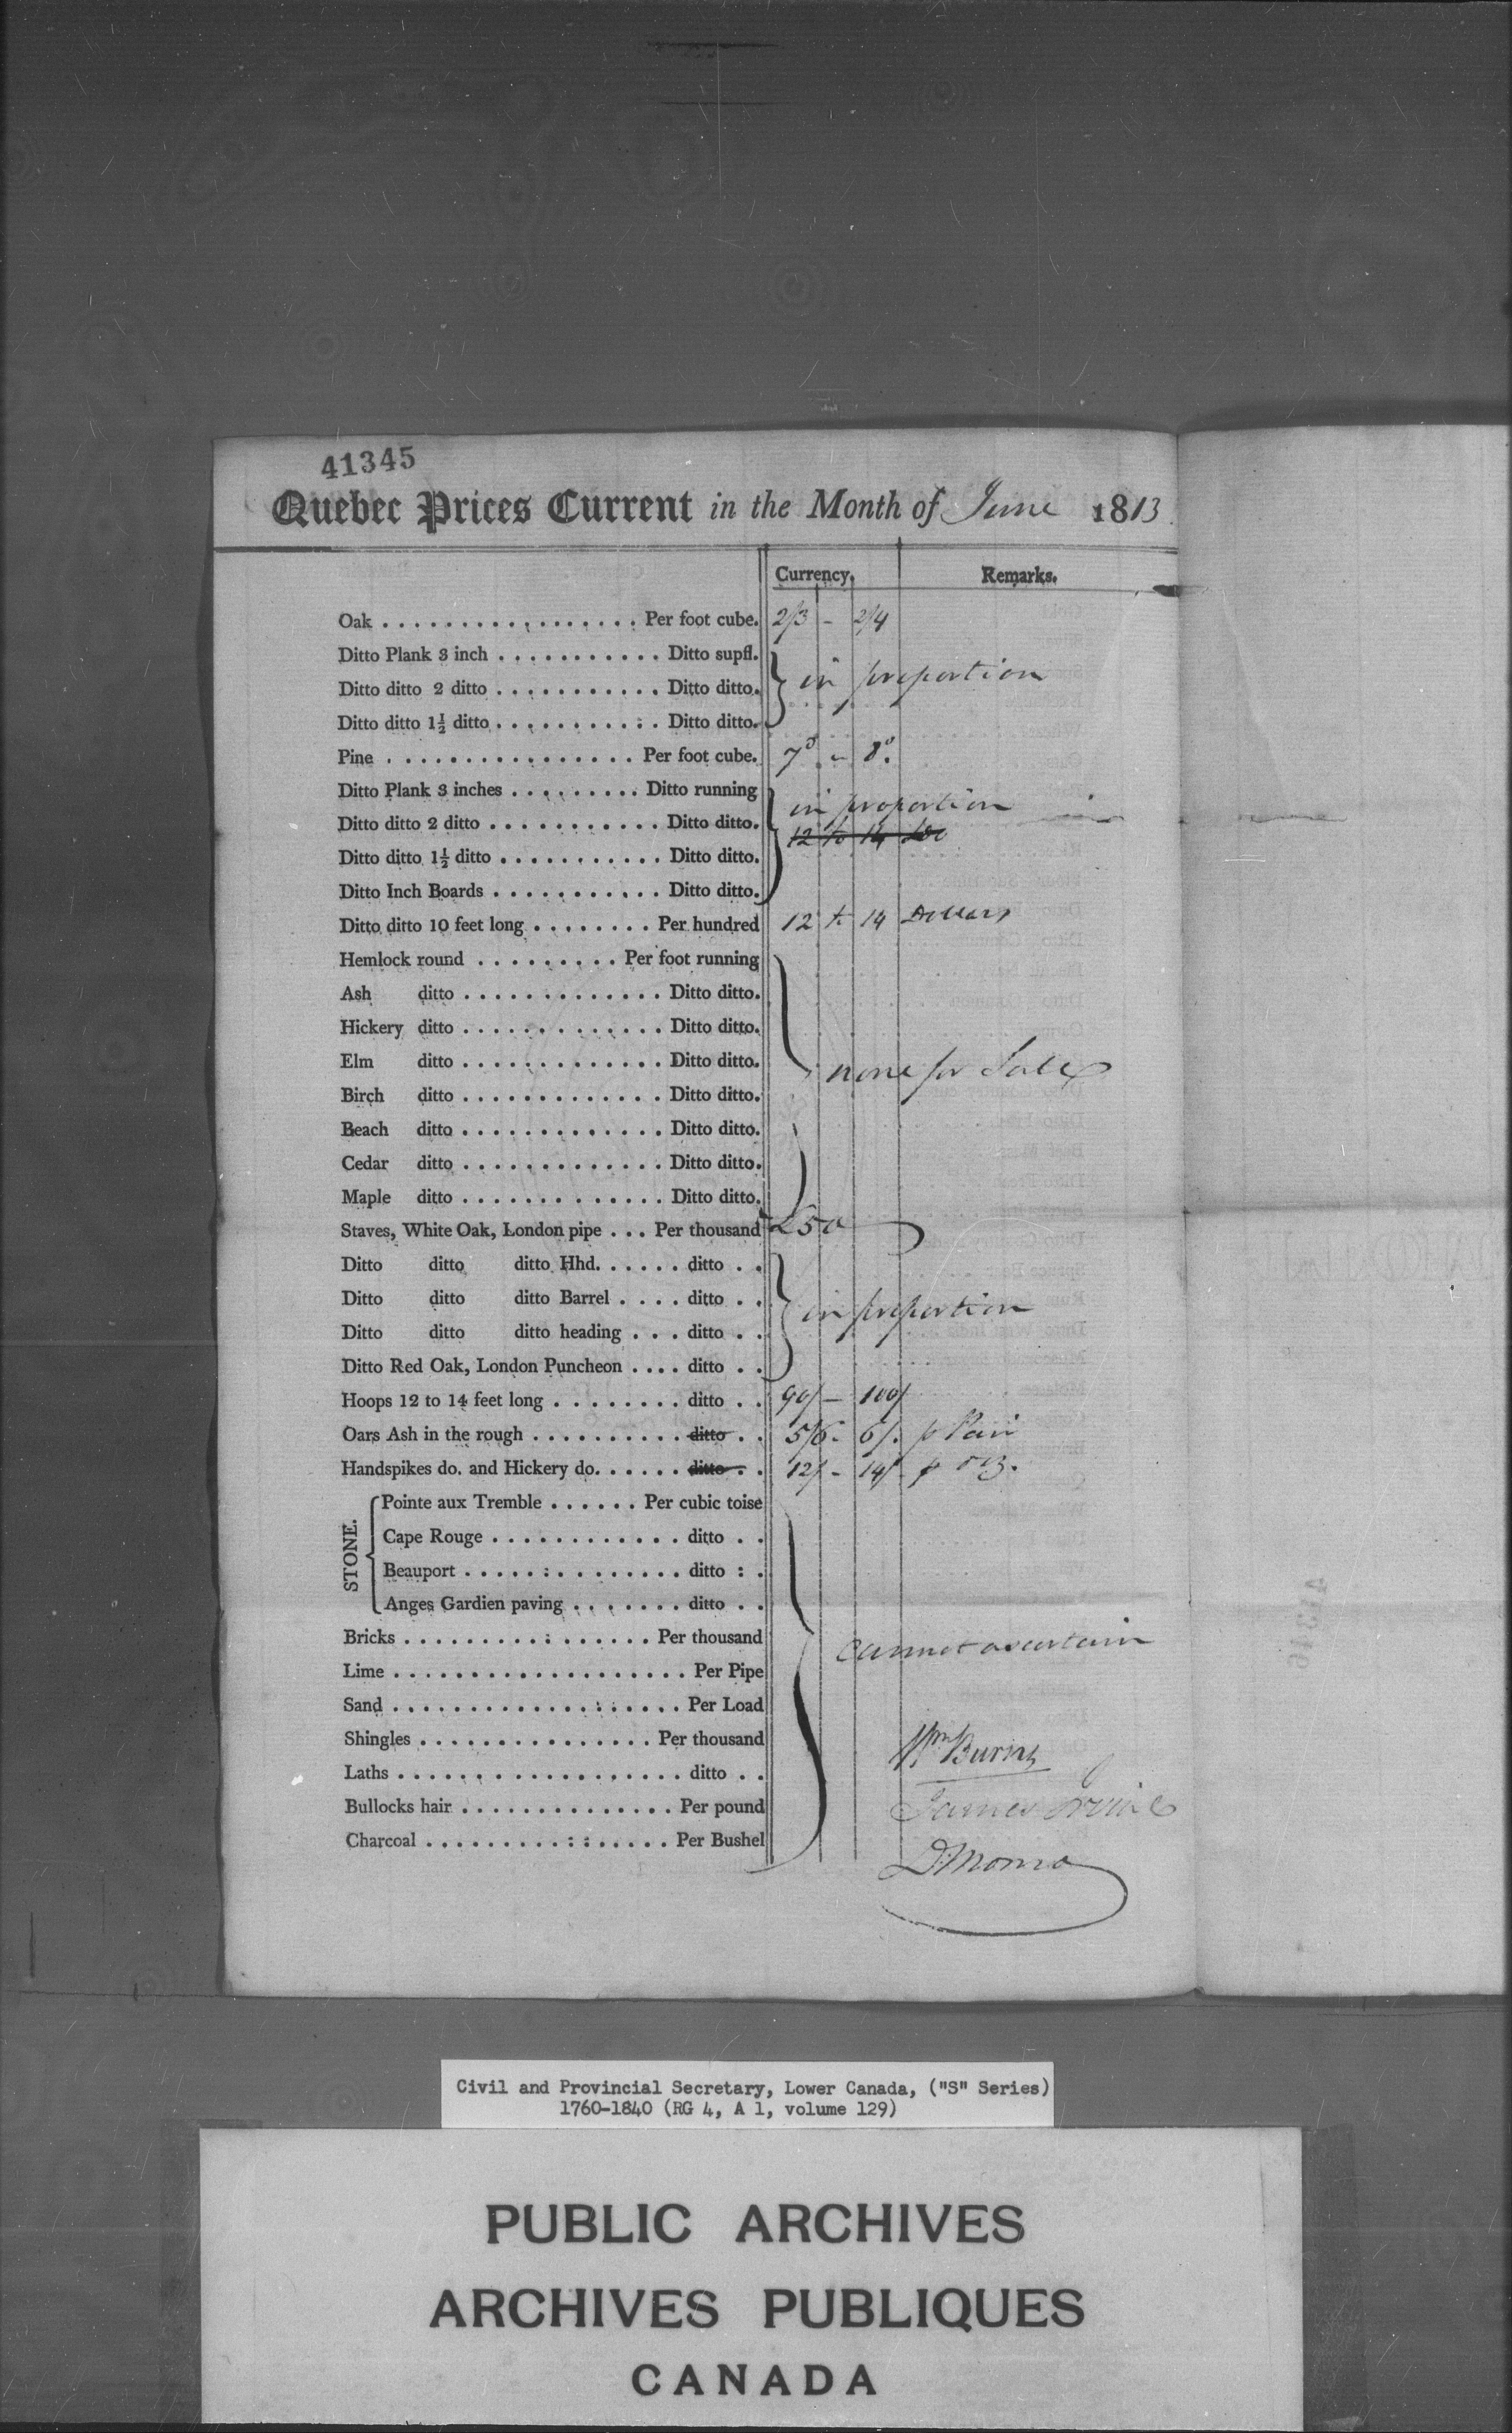 41345
Quebec Prices Current in the Month of June 1813
Currency. Remarks.
Oak . . . . . . . . . . . . . . . . Per foot cube. 2/3 - 2/4
Ditto Plank 3 inch . . . . . . . . . . . Ditto supfl.
Ditto ditto 2 ditto . . . . . . . . . . . Ditto ditto. } in proportion
Ditto ditto 1½ ditto . . . . . . . . . . . Ditto ditto.
Pine . . . . . . . . . . . . . . . . Per foot cube. 7d - 8d.
Ditto Plank 3 inches . . . . . . . . . Ditto running
in proportion
Ditto ditto 2 ditto . . . . . . . . . . . Ditto ditto.
12 to 14 Do
Ditto ditto 1½ ditto . . . . . . . . . . . Ditto ditto.
Ditto Inch Boards . . . . . . . . . . . Ditto ditto.
Ditto ditto 10 feet long . . . . . . . . Per hundred 12 to 14 Dollars
Hemlock round . . . . . . . . . Per foot running
Ash ditto . . . . . . . . . . . . . Ditto ditto.
Hickery ditto . . . . . . . . . . . . . Ditto ditto.
Elm ditto . . . . . . . . . . . . . Ditto ditto. none for Sale
Birch ditto . . . . . . . . . . . . . Ditto ditto.
Beach ditto . . . . . . . . . . . . . Ditto ditto.
Cedar ditto . . . . . . . . . . . . . Ditto ditto.
Maple ditto . . . . . . . . . . . . . Ditto ditto.
Staves, White Oak, London pipe . . . Per thousand £50
Ditto ditto ditto Hhd. . . . . . ditto . .
Ditto ditto ditto Barrel . . . . ditto . . } in proportion
Ditto ditto ditto heading . . . ditto . .
Ditto Red Oak, London Puncheon . . . . ditto . .
Hoops 12 to 14 feet long . . . . . . . . ditto . . 90/ - 100/
Oars Ash in the rough . . . . . . . . . . ditto . . 5/6 - 6/. p Pair
Handspikes do. and Hickery do. . . . . . ditto . . 12/ - 14/ p Doz.
STONE.
Pointe aux Tremble . . . . . . Per cubic toise
Cape Rouge . . . . . . . . . . . . ditto . .
Beauport . . . . . : . . . . . . . . ditto : .
Anges Gardien paving . . . . . . . ditto . .
Bricks . . . . . . . . . : . . . . . . Per thousand cannot ascertain
Lime . . . . . . . . . . . . . . . . . . . Per Pipe
Sand . . . . . . . . . . . . . : . : . . . . Per Load
Shingles . . . . . . . . . . . . . . . Per thousand
Wm Burns
Laths . . . . . . . . . . . . . . . . . . ditto . .
Bullocks hair . . . . . . . . . . . . . . Per pound
James Irvine
Charcoal . . . . . . . . . : : . . . . . Per Bushel
D: Monro
Civil and Provincial Secretary, Lower Canada, ("S" Series)
1760-1840 (RG 4, A 1, volume 129)
PUBLIC ARCHIVES
ARCHIVES PUBLIQUES
CANADA